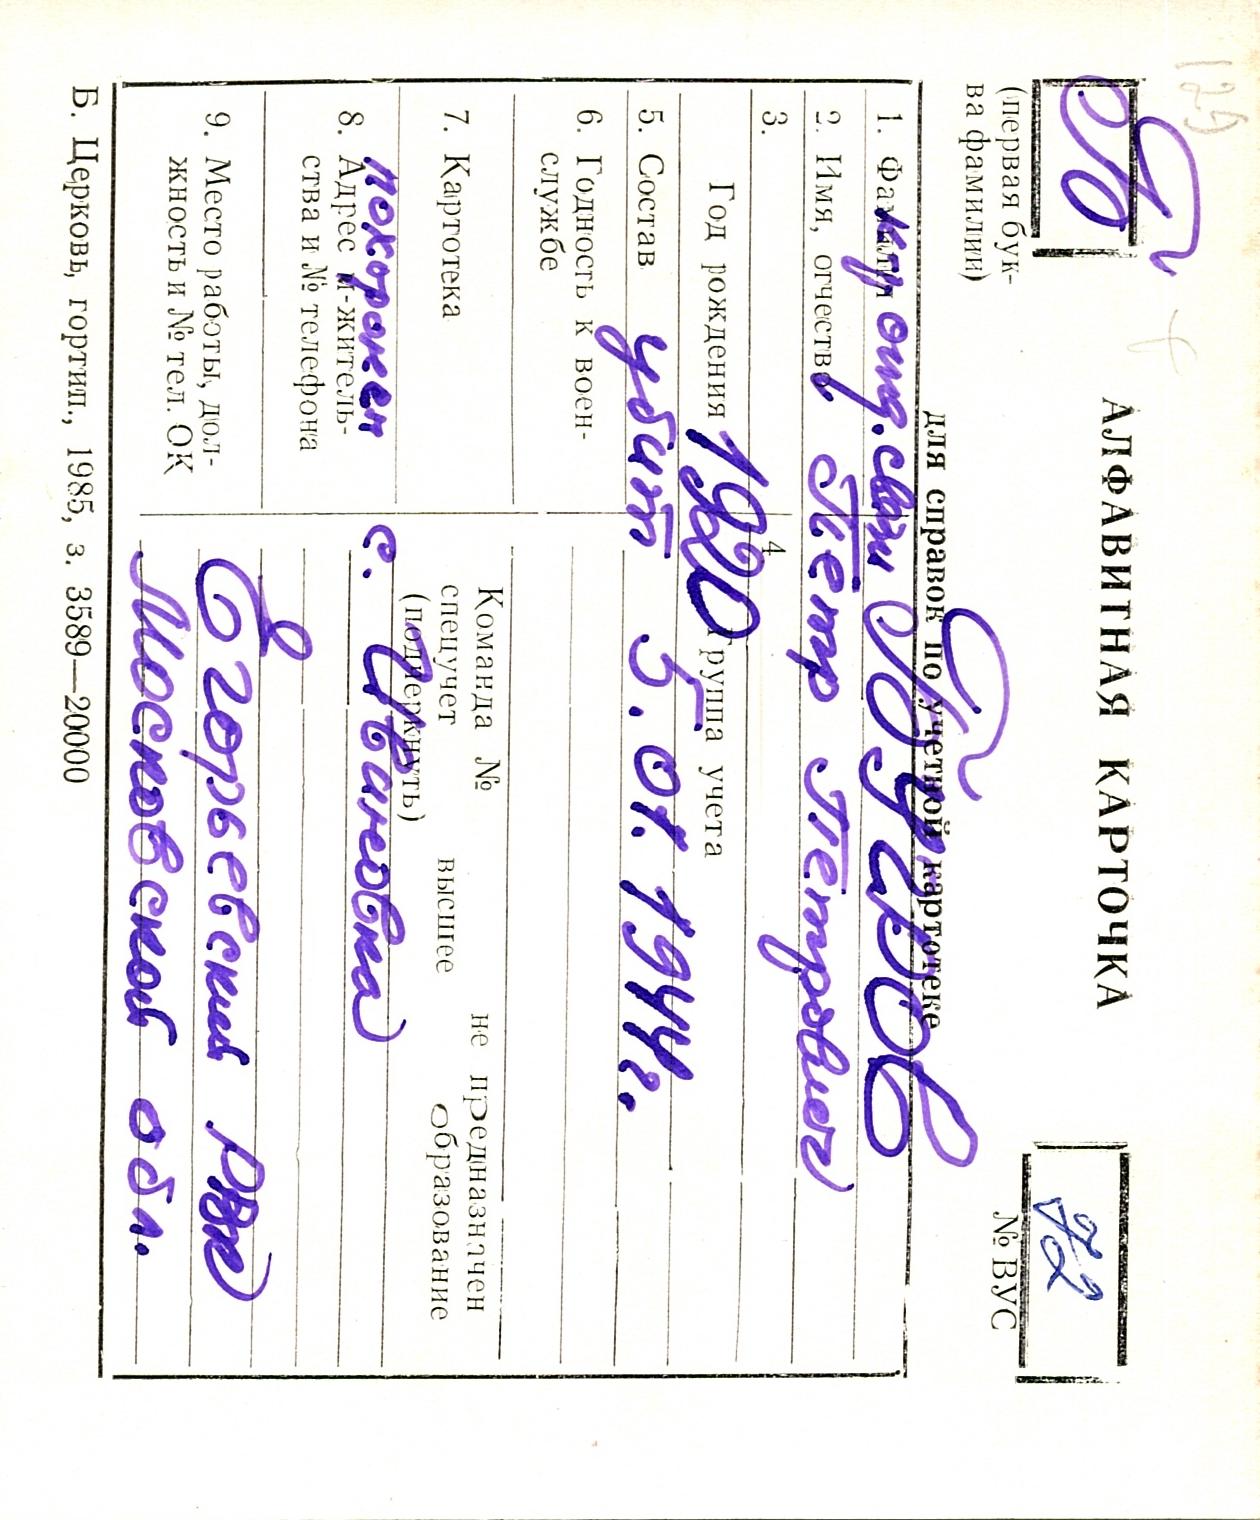 129
Б
(первая бук-
ва фамилии)
АЛФАВИТНАЯ КАРТОЧКА
для справок по учетной картотеке
72
№ ВУС
1. Фамилия к-р отд. связи Бугров
2. Имя, отчество Пётр Петрович
3.
Год рождения 1920
4
Группа учета
5. Состав убит 5.01.1944г.
6. Годность к воен-
службе
7. Картотека
Команда № не предназначен
спецучет высшее образование
(подчеркнуть)
8. Адрес и житель-
ства и № телефона
похоронен с. Ивановка
9. Место работы, дол-
жность и № тел. ОК
Егорьевский РВК
Московской обл.
Б. Церковь, гортип., 1985, з. 3589—20000